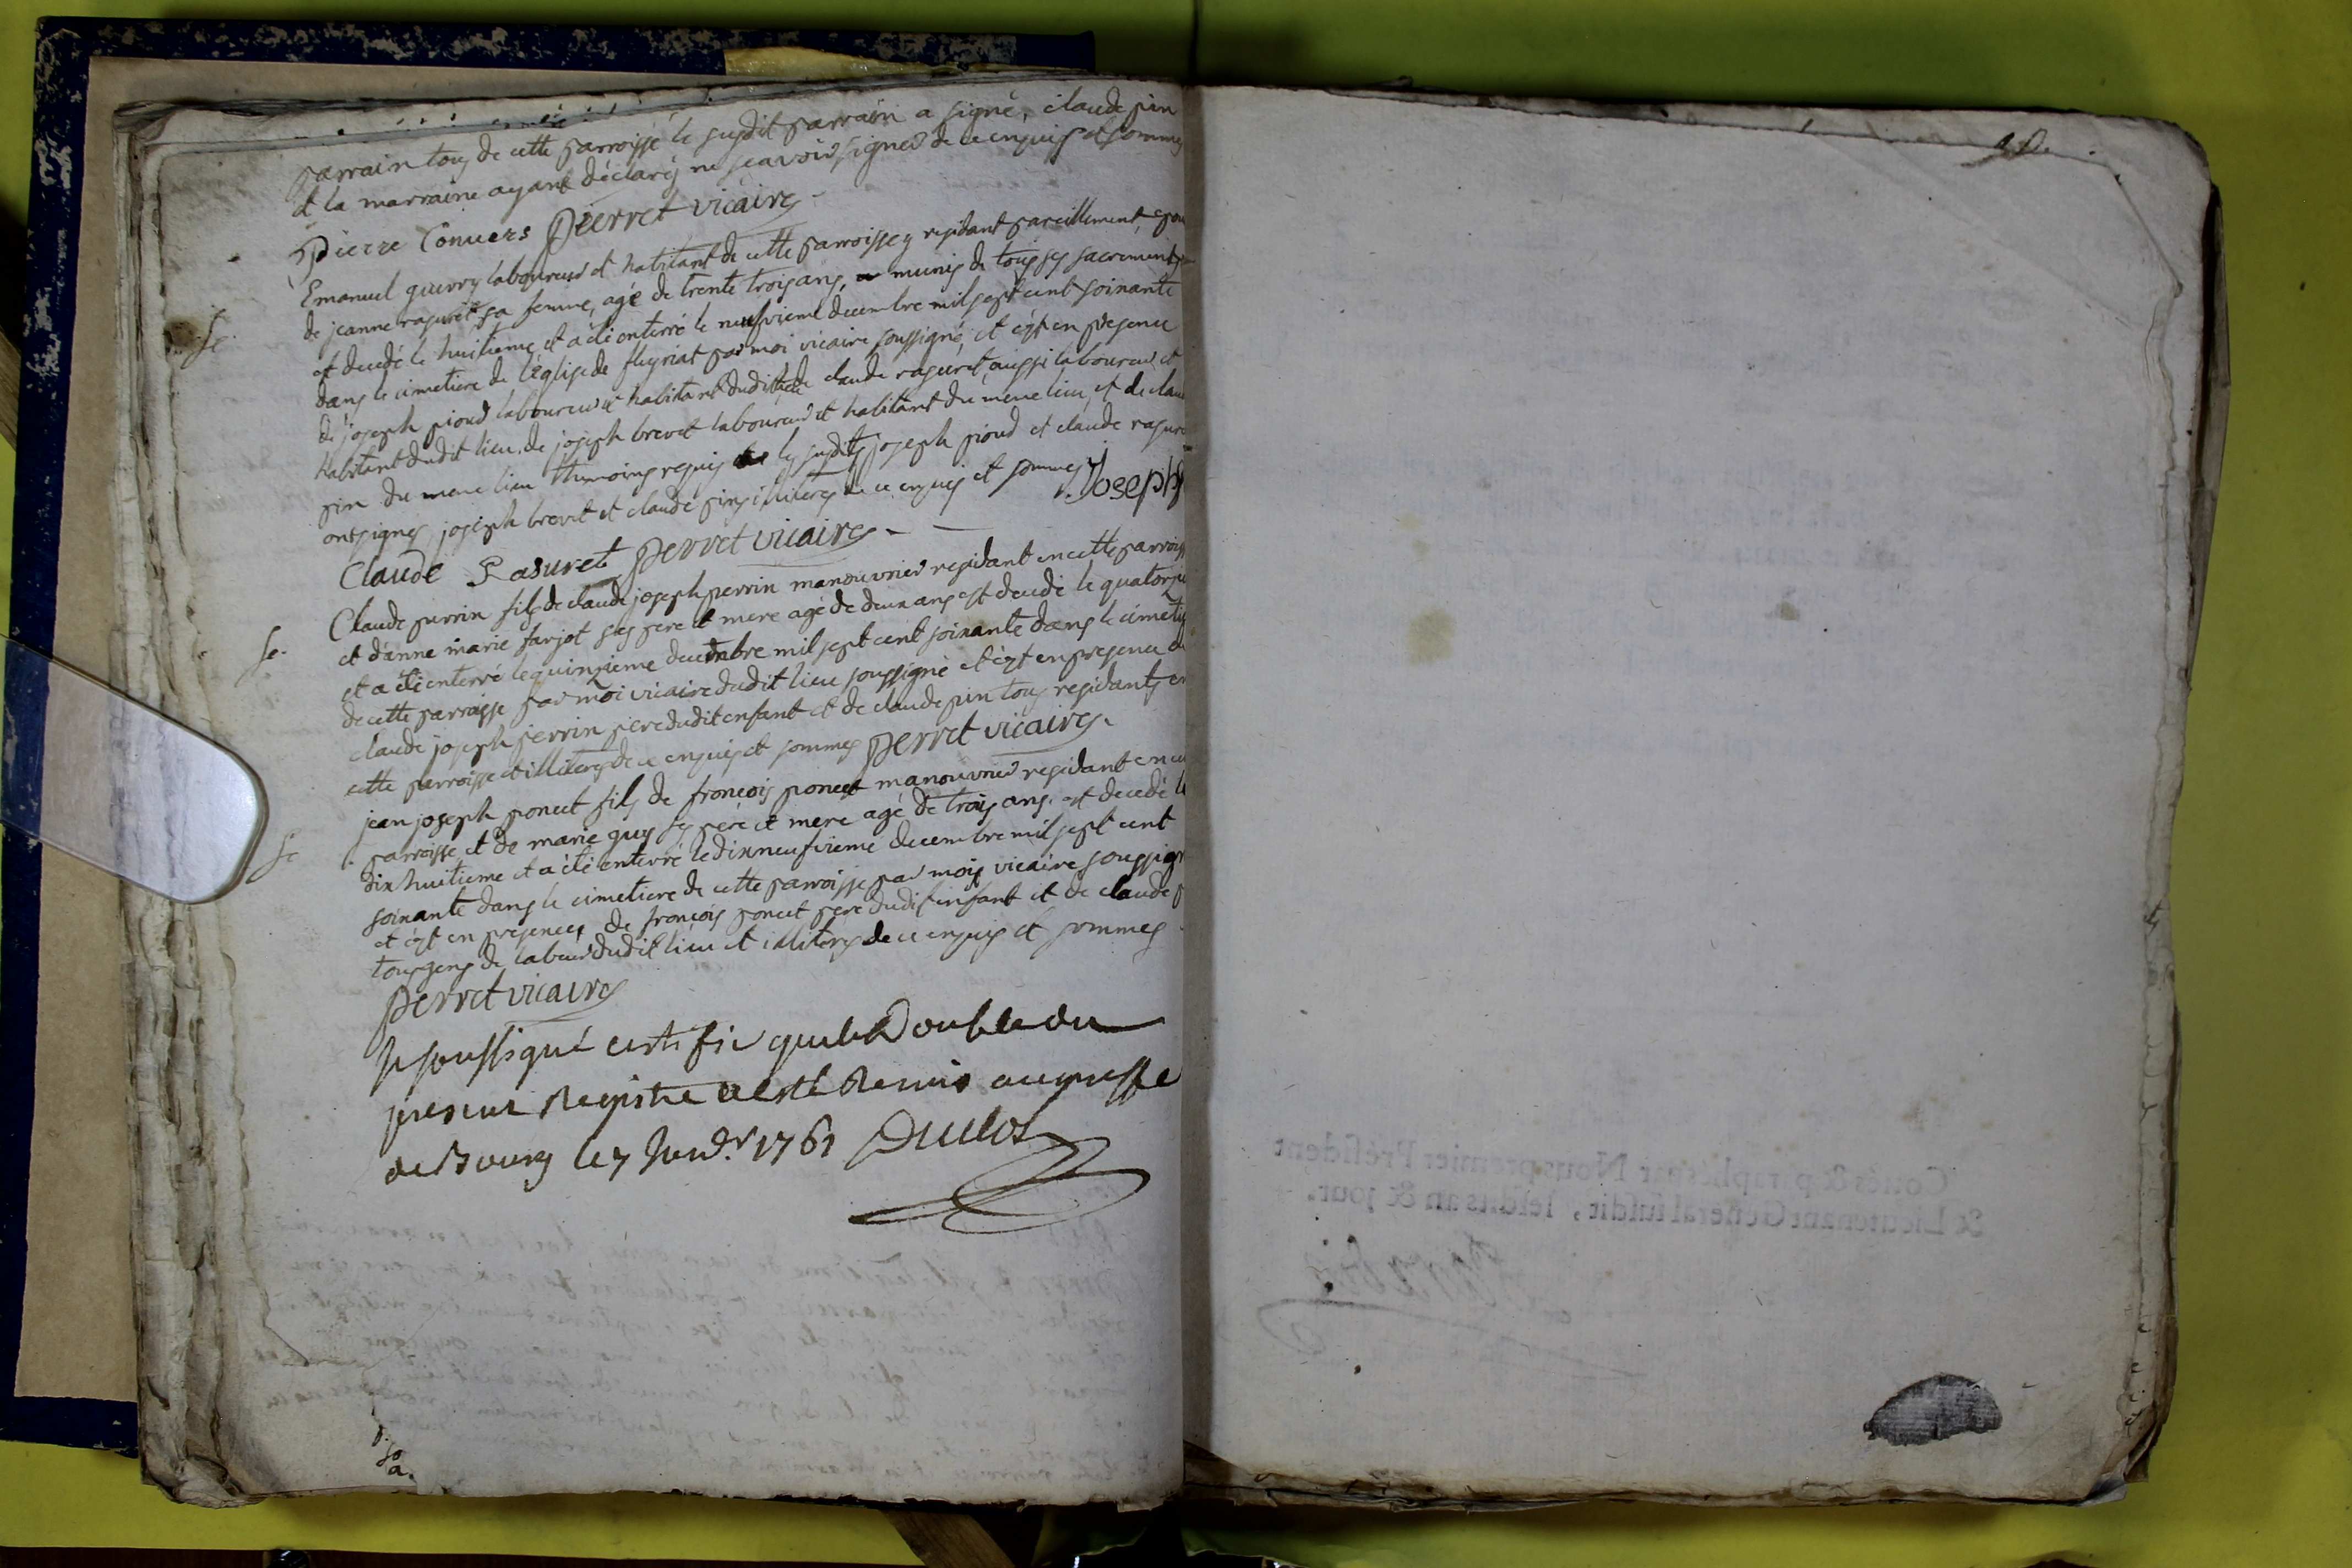 parrain tous de cette parroisse le susdit parrain a signé, claude pin
et la marraine ayant déclarés ne scavoir signer de ce enquis et sommes
Pierre Convers Pierret vicaire
Emanuel guerry laboureur et habitant de cette parroisse y residant pareillement,
de jeanne rasuret sa femme, agé de trente trois ans, munis de tous ses sacrements
et decedé le huitieme et a été enterré le neufvieme decembre mil sept cent soixante
dans le cimetiere de l'église de fleyriat par moi vicaire soussigné, et c'est en presence
de joseph pioud laboureur et habitant dudit lieu de claude rasuret, aussi laboureur et
habitant dudit lieu, de joseph brevet laboureur et habitant du meme lieu, et de
pin du meme lieu themoins requis les susdits joseph pioud et claude
ont signes, joseph brevet et claude pins illiteres de ce enquis et sommes Joseph
Claude Rasuret perret vicaire
Claude perrin fils de claude joseph perrin manouvrier residant en cette
et d'anne marie farjot ses pere et mere agé de deux ans est decedé le
et a été enterré le quinzieme decembre mil sept cent soixante dans le
de cette parroisse par moi vicaire dudit lieu soussigné et c'est en presence de
claude joseph perrin pere dudit enfant et de claude pin tous residants en
cette parroisse et illiteres de ce enquis et sommes perret vicaire
jean joseph poncet fils de francois poncet manouvrier residant en
parroisse et de marie guy ses pere et mere agé de trois ans est decedé le
dix huitieme et a été enterré le dixneufvieme decembre mil sept cent
soixante dans le cimetiere de cette parroisse par moi vicaire
et c'est en presences de francois poncet pere dudit enfant et de claude
tous gens de labeur dudit lieu et illiteres de ce enquis et sommes
perret vicaire
Je soussigné certifie que le Double du
present Registre a esté Remis au greffe
de Bourg le 7 1761 Duclos
Cottés & paraphés par Nous premier Président
& Lieutenant General susdit, lesdits an & jour.